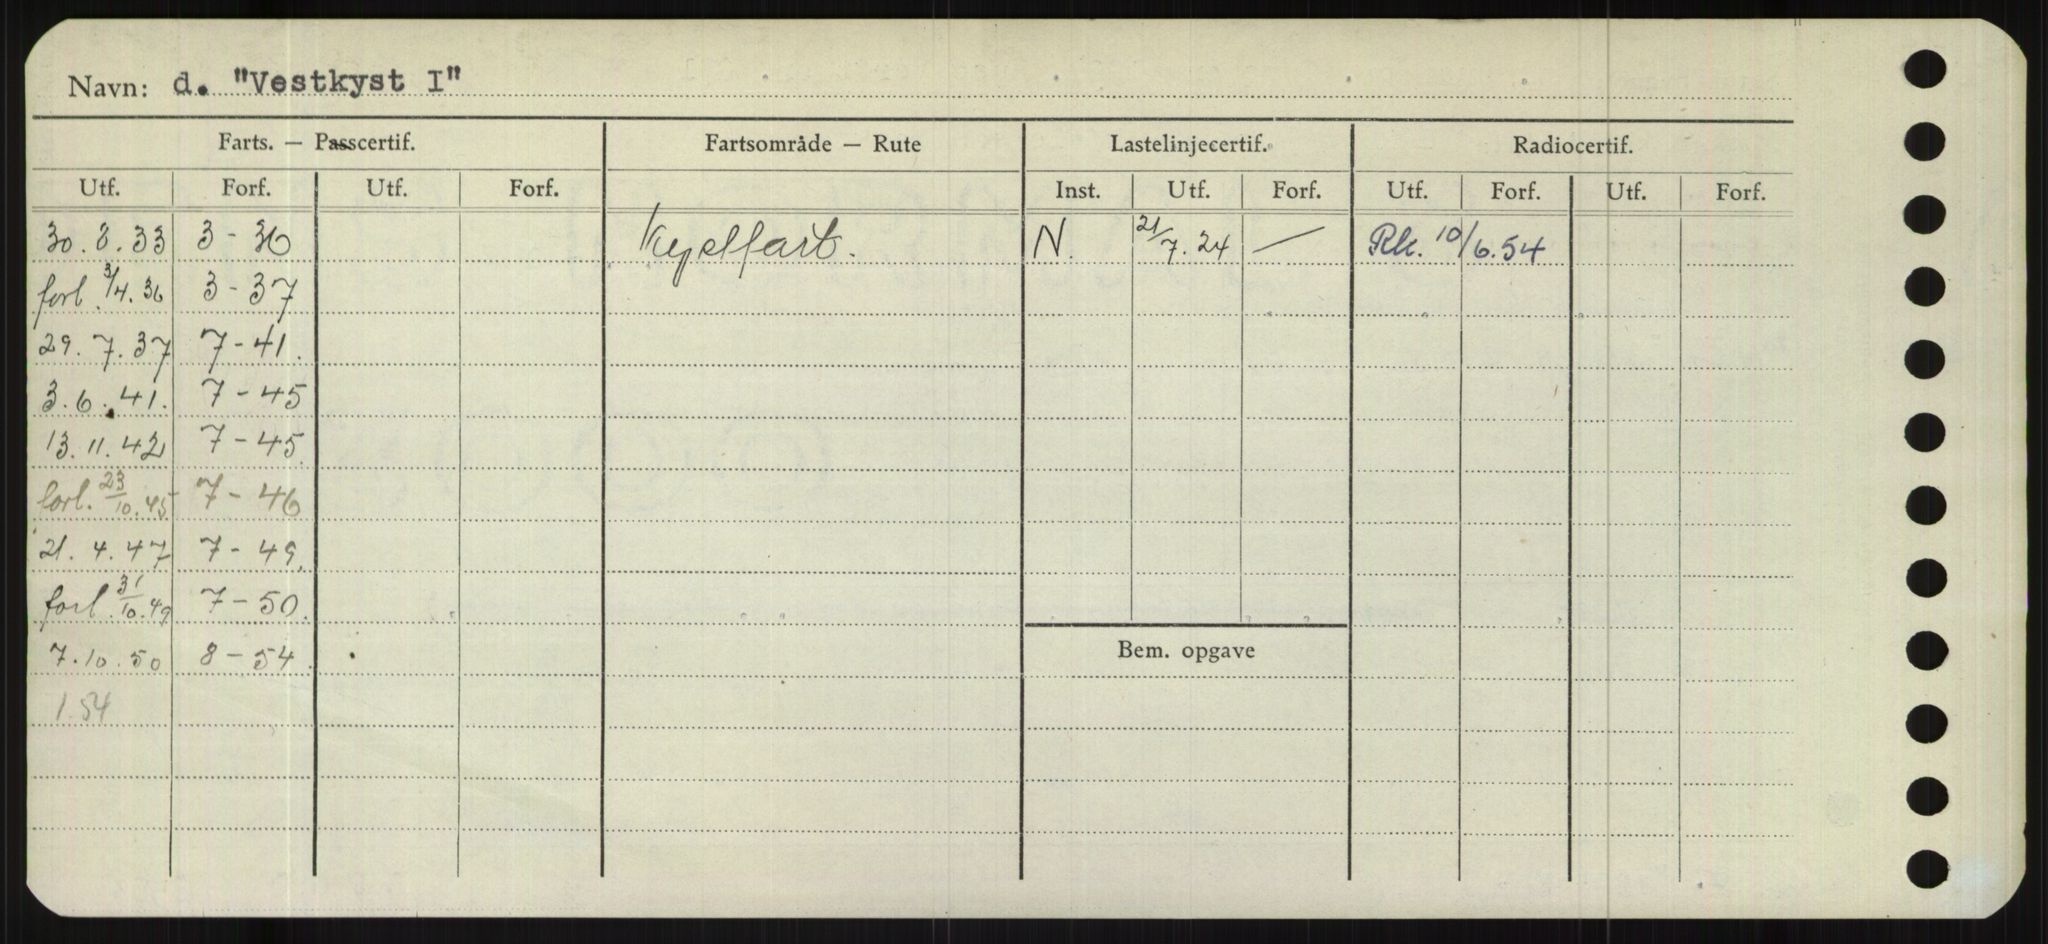 Navn: d. "Vestkyst I"
Farts. — Passcertif. Fartsområde — Rute Lastelinjecertif. Radiocertif.
Utf. Forf. Utf. Forf. Inst. Utf. Forf. Utf. Forf. Utf. Forf.
30.8.33 3-36 Kystfart. N. 21/7.24 — Rk. 10/6.54
forl 3/4.36 3-37
29.7.37 7-41.
3.6.41. 7-45
13.11.42 7-45
forl. 23/10.45 7-46
21.4.47 7-49.
forl. 31/10.49 7-50.
7.10.50 8-54.
Bem. opgave
1.54